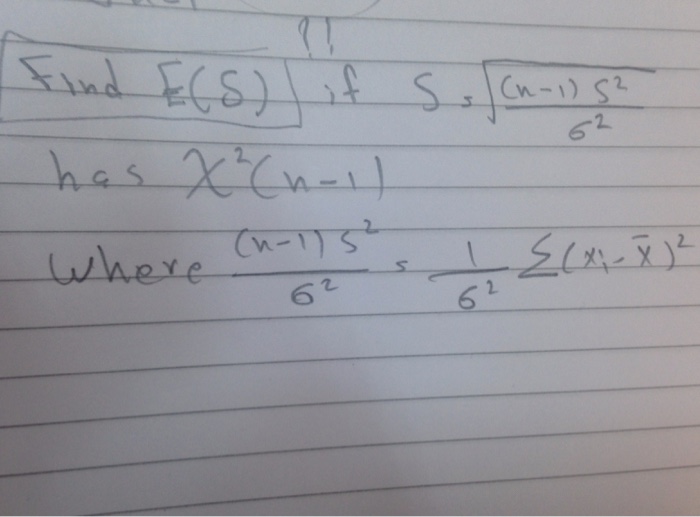 ??
Find E(S) if S = √((n-1) S² / 6²)
has X²(n-1)
Where (n-1) S² / 6² = 1 / 6² Σ(xi - x̄)²